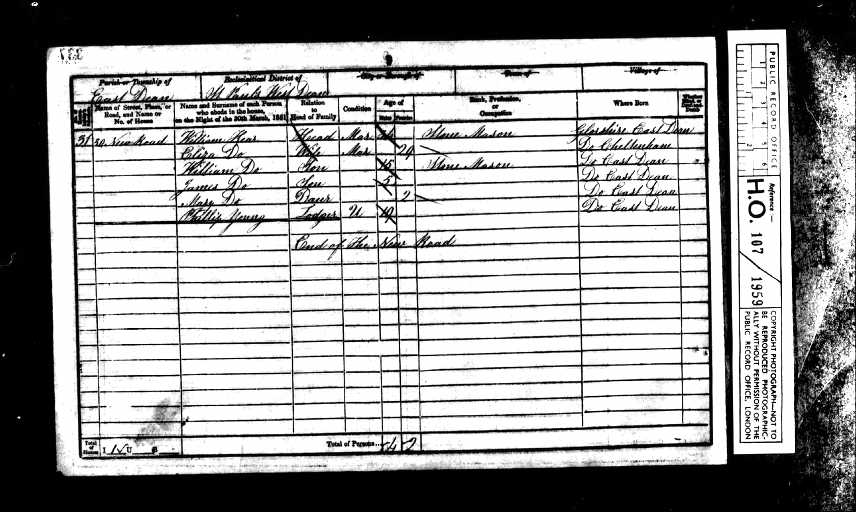 Parish or Township of
East Dean
Ecclesiastical District of
St Pauls West Dean
City or Borough of
Town of
Village of
Name of Street, Place, or Road, and Name or No. of House
Name and Surname of each Person who abode in the house, on the Night of the 30th March, 1851
Relation to Head of Family
Condition
Age of
Males Females
Rank, Profession, or Occupation
Where Born
Whether Blind, or Deaf-and-Dumb
31 30 New Road William Head Mar Stone Mason Glosshire East Dean
Eliza Do Wife Mar 29 Do Cheltenham
William Do Son 15 Stone Mason Do East Dean
James Do Son 5 Do East Dean
Mary Do Daur 2 Do East Dean
Phillip Young Lodger U 19 Do East Dean
End of the New Road
Total of Houses I 1 U B
Total of Persons 4 2
PUBLIC RECORD OFFICE
1 2 3 4 5 6
Reference :-
H.O. 107 / 1959
COPYRIGHT PHOTOGRAPH—NOT TO
BE REPRODUCED PHOTOGRAPHIC-
ALLY WITHOUT PERMISSION OF THE
PUBLIC RECORD OFFICE, LONDON